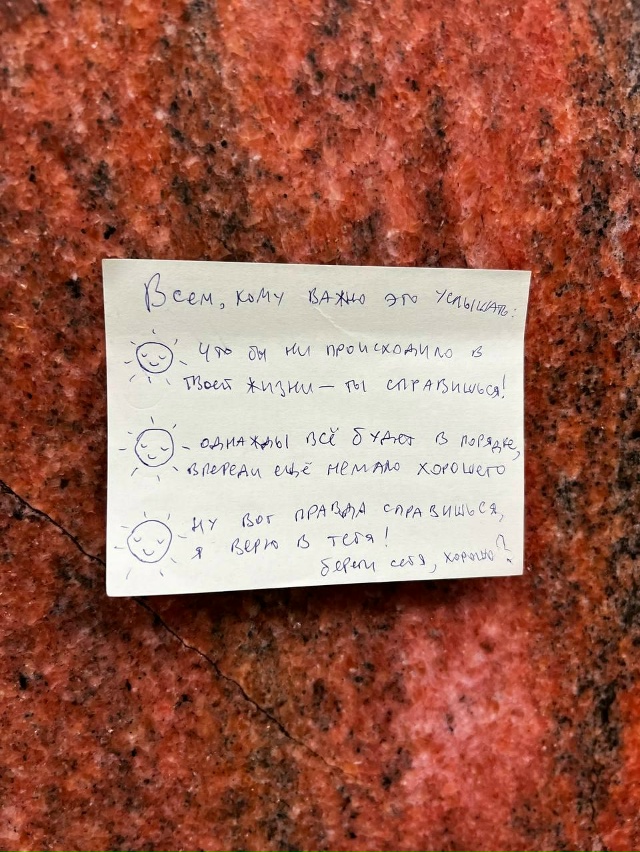 Всем, кому важно это услышать:
Что бы ни происходило в
твоей жизни — ты справишься!
однажды всё будет в порядке,
впереди ещё немало хорошего
ну вот правда справишься,
я верю в тебя!
береги себя, хорошо?